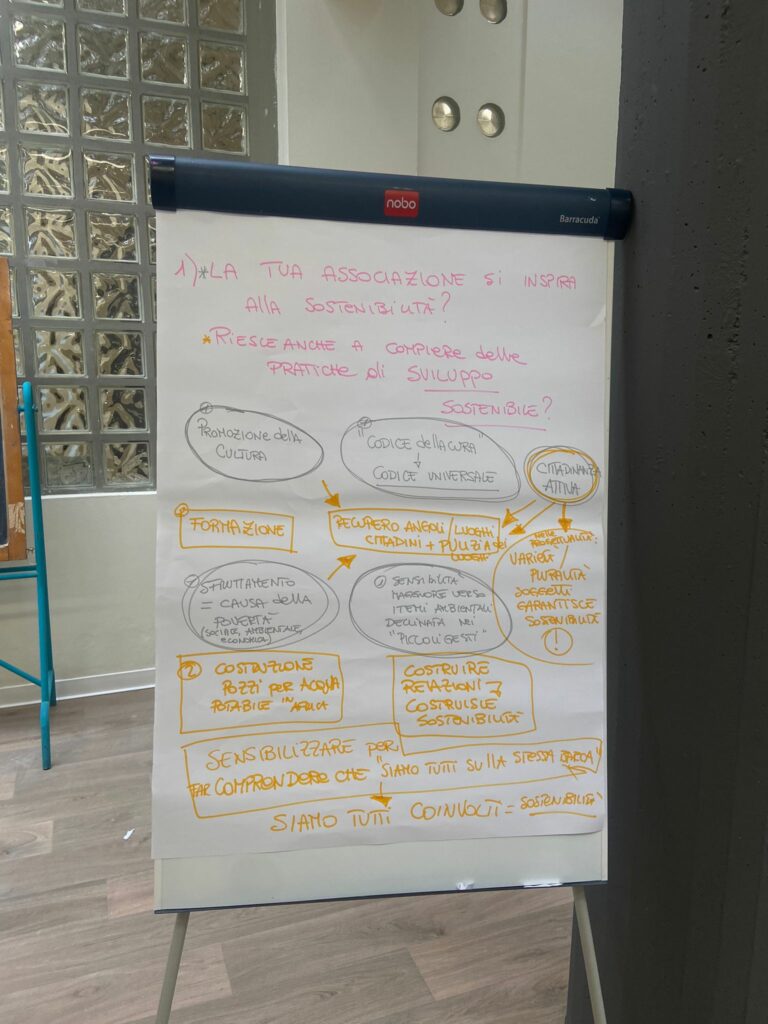 nobo
Barracuda
1)*LA TUA ASSOCIAZIONE SI INSPIRA
ALLA SOSTENIBILITÀ?
*RIESCE ANCHE A COMPIERE delle
PRATICHE di SVILUPPO
SOSTENIBILE?
PROMOZIONE della
CULTURA
"CODICE della CURA"
CODICE UNIVERSALE
CITTADINANZA
ATTIVA
FORMAZIONE
RECUPERO ANGOLI / LUOGHI
CITTADINI + PULIZIA dei
LUOGHI
NELLE
PROGETTUALITÀ:
VARIETÀ /
PLURALITÀ
SOGGETTI
GARANTISCE
SOSTENIBILITÀ
!
SFRUTTAMENTO
= CAUSA della
POVERTÀ
(SOCIALE, AMBIENTALE,
ECONOMICA)
SENSIBILITÀ
MAGGIORE VERSO
I TEMI AMBIENTALI
DECLINATA NEI
"PICCOLI GESTI"
2 COSTRUZIONE
POZZI per ACQUA
POTABILE IN AFRICA
COSTRUIRE
RELAZIONI
COSTRUISCE
SOSTENIBILITÀ
SENSIBILIZZARE PER
FAR COMPRENDERE CHE "SIAMO TUTTI SULLA STESSA BARCA"
SIAMO TUTTI COINVOLTI = SOSTENIBILITÀ